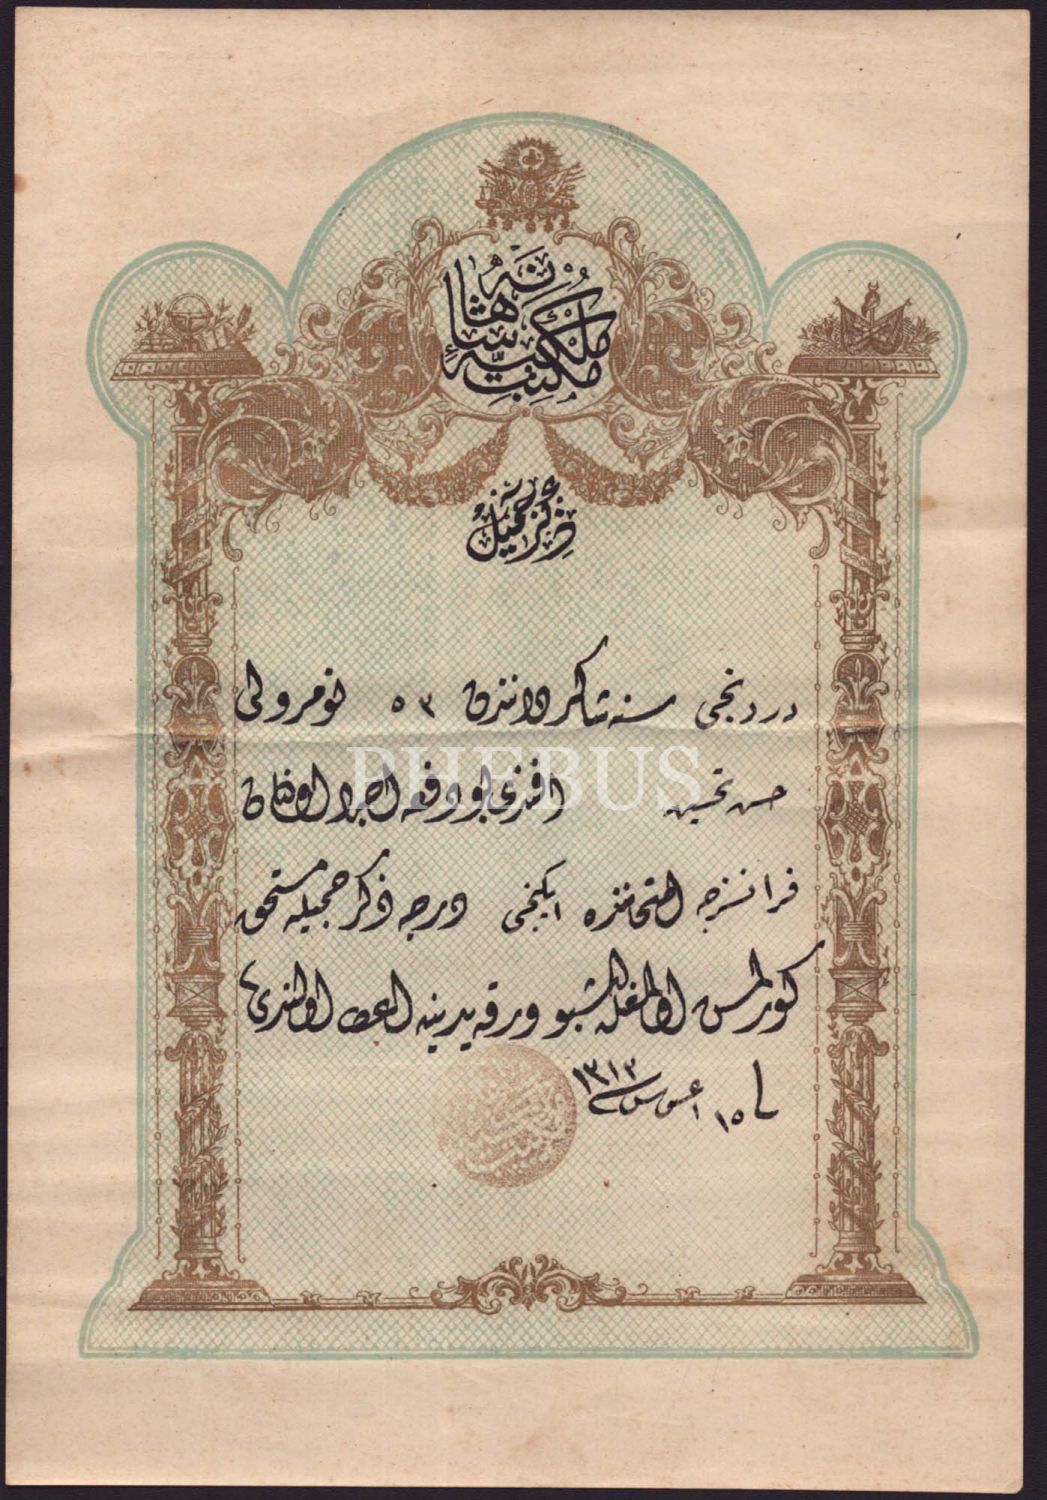 مكتب ملكيه شاهانه
ذكر جميل
دردنجى سنه شاكرداننن ٥٣ نومرولى
حسن تحسين افندى بو دفعه اجرا اولنان
فرانسزجه امتحاننده ايكنجى درجه ذكر جميله مستحق
كورلمش اولمغله اشبو ورقه يدينه اعطا اولندى
فى ١٥ اغستوس سنه ١٣١٣
PHEBUS